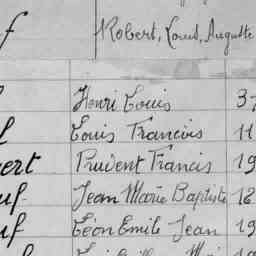 f Robert, Louis, Auguste
Henri Louis 37
l Louis Francois 11
ert Prudent Francis 19
uf Jean Marie Baptiste 12
uf Léon Emile Jean 19